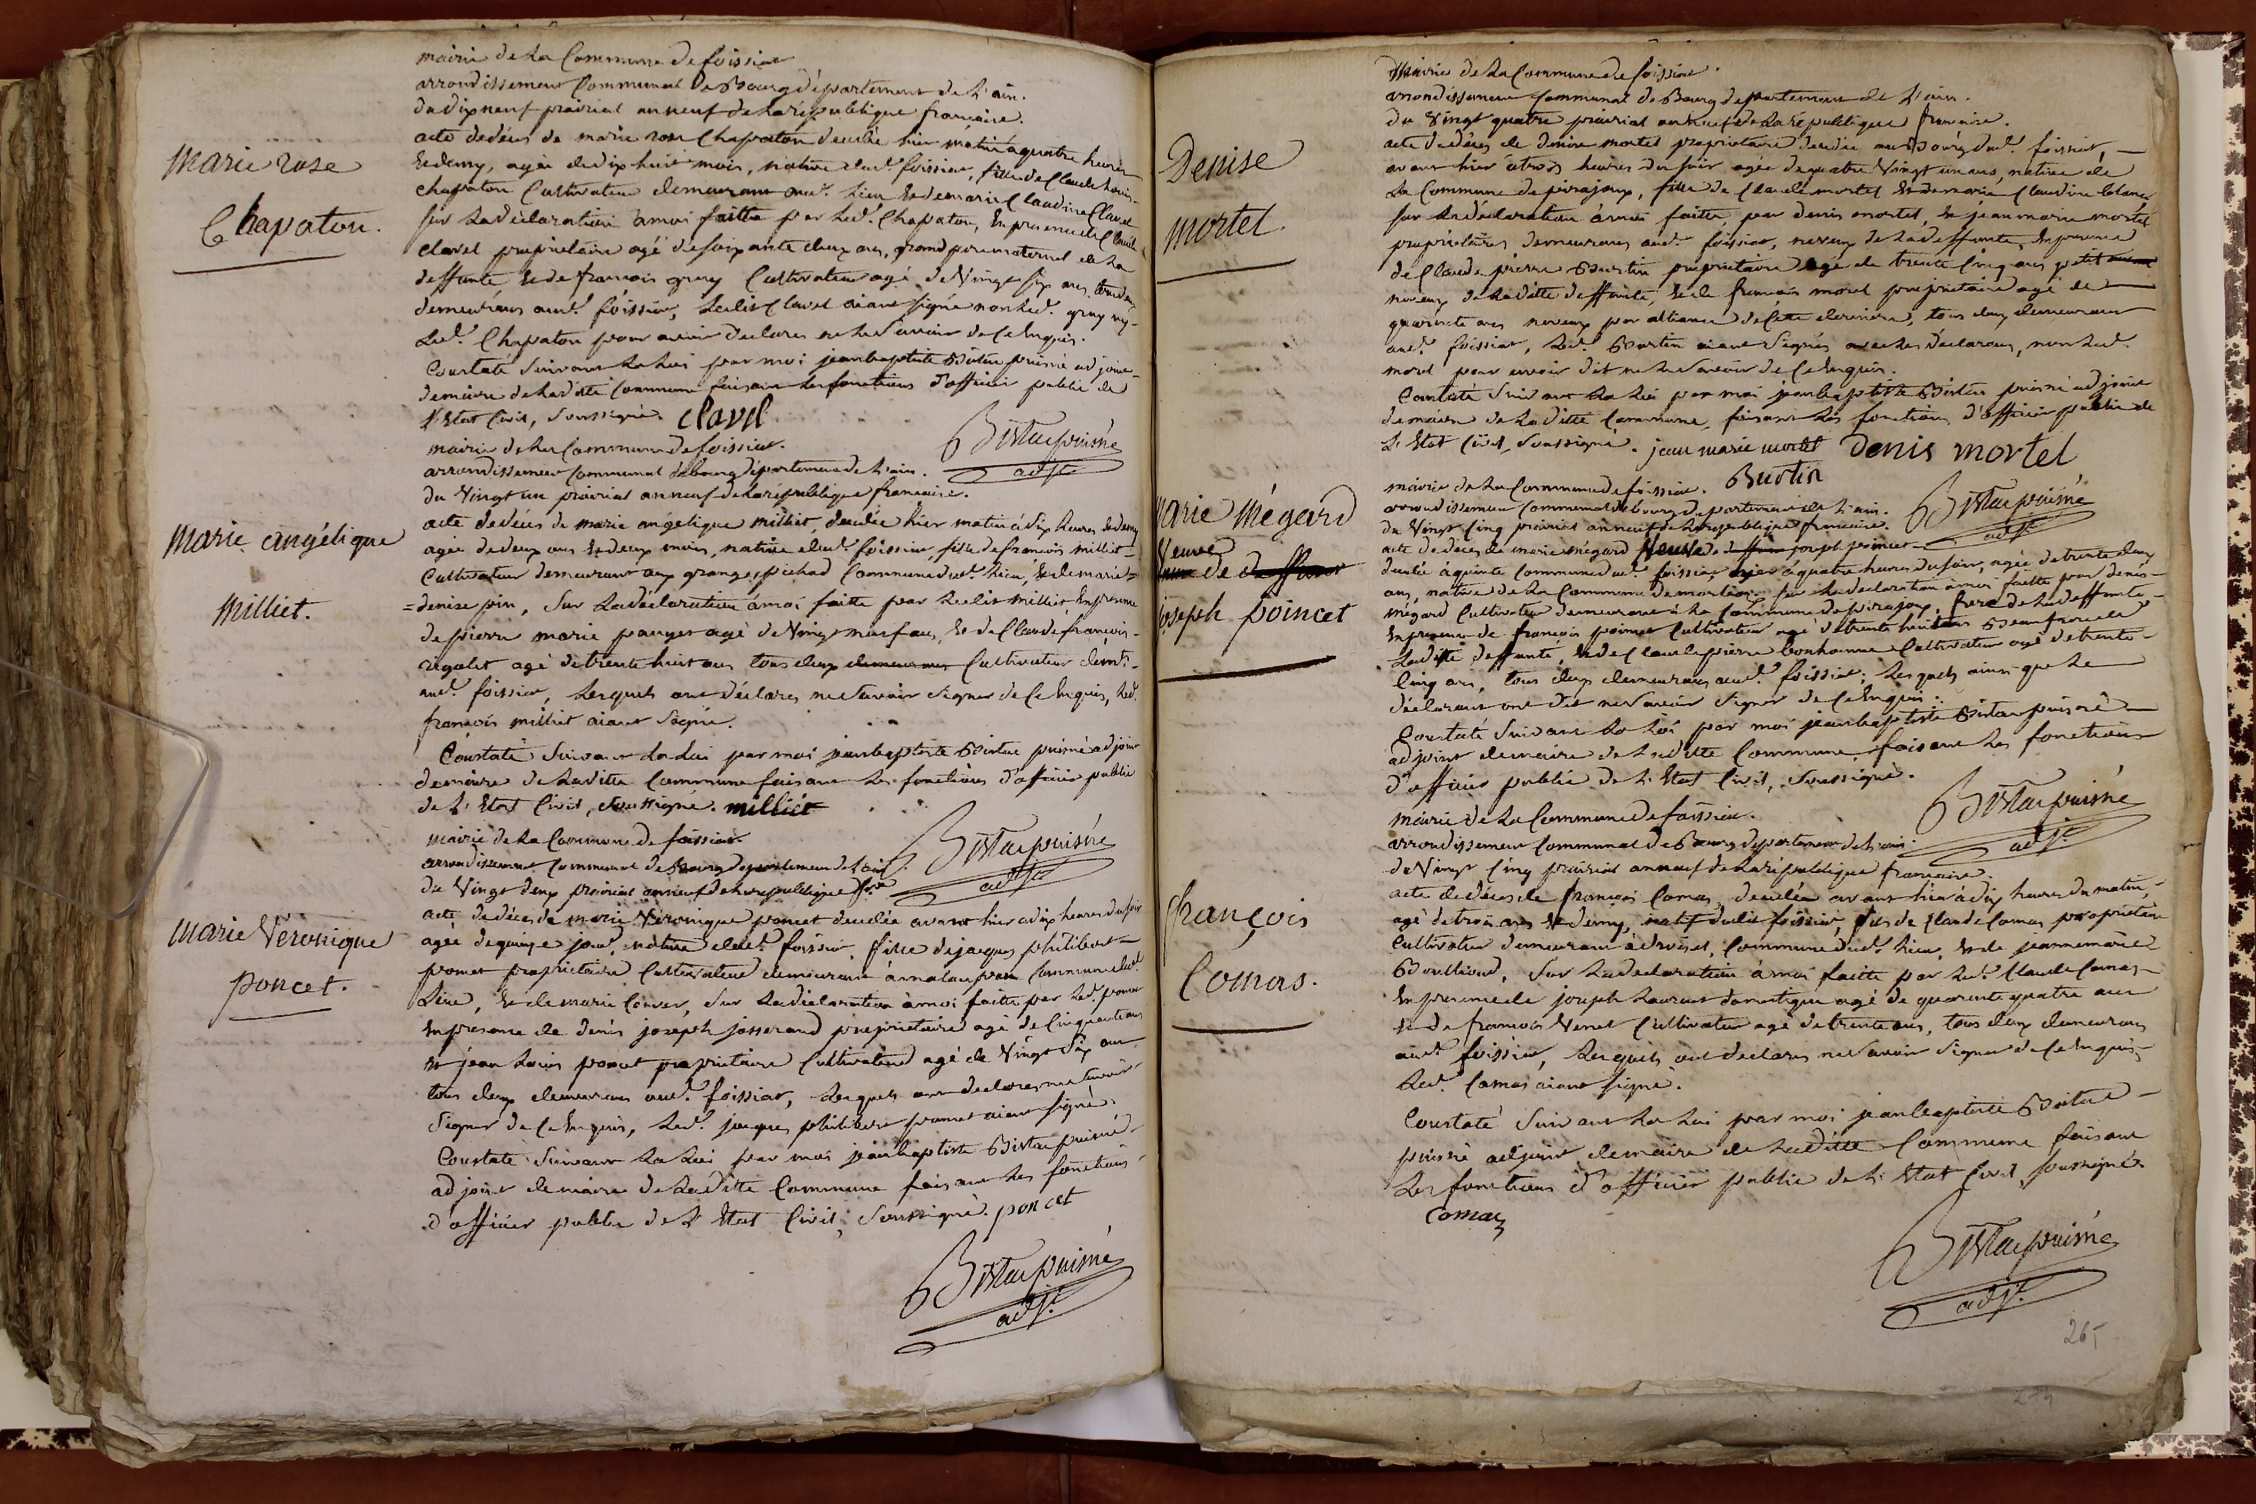 mairie de la Commune de foissiat
arrondissement Communal de Bourg département de l'ain.
du dix neuf prairial an neuf de la république francaise.
Marie rose
Chapaton.
acte de décès de marie rose Chapaton decedée hier matin à quatre heures
et demy, agée de dix huit mois, native dud. foissiat, fille de Claude Louis
chapaton Cultivateur demeurant aud. lieu et de marie Claudine Clavel
sur la déclaration à moi faitte par led. Chapaton, En presence de Claude
clavel propriétaire agé de soixante deux ans, grand pere maternel de la
deffunte et de francois gruy Cultivateur agé de Vingt six ans, tous deux
demeurants aud. foissiat, ledit Clavel aiant signé non led. gruy ny
led. Chapaton pour avoir declares ne le savoir de ce Enquis.
Constaté suivant la loi par moi jean baptiste puisné adjoint
de maire de laditte Commune faisant les fonctions d'officier public de
l'Etat Civil, soussigné. Clavel
puisné
adjt
mairie de la Commune de foissiat.
arrondissement Communal de bourg département de l'ain.
du Vingt un prairial an neuf de la république francaise.
Marie angélique
Milliet.
acte de décès de marie angélique milliet, decedée hier matin à six heures et demy
agée de deux ans et deux mois, native dud. foissiat, fille de francois milliet
Cultivateur demeurant aux granges pichod Commune dud. lieu, et de marie
= denise pin, sur la déclaration à moi faitte par ledit milliet, En presence
de pierre marie pauget agé de Vingt neuf ans, et de Claude francois
rigolet agé de trente huit ans tous deux demeurans Cultivateur demt.
aud. foissiat, lesquels ont déclarés ne savoir signer de ce Enquis, led.
francois milliet aiant signé.
Constaté suivant la loi par moi jean baptiste puisné adjoint
de maire de laditte Commune faisant les fonctions d'officier public
de l'Etat Civil, soussigné. milliet
puisné
adjt
mairie de la Commune de foissiat.
arrondissement Communal de Bourg departement de l'ain.
du Vingt deux prairial an neuf de la république fse
Marie Véronique
poncet.
acte de décès de marie Véronique poncet decedée avant hier à dix heures du soir
agée de quinze jours, native dud. foissiat, fille de jacques philibert
poncet propriétaire Cultivateur demeurant à Commune dud.
Lieu, et de marie, sur la déclaration à moi faitte par led. poncet
En presence de denis joseph josserand propriétaire agé de Cinquante ans
et jean Louis poncet propriétaire Cultivateur agé de Vingt six ans
tous deux demeurans aud. foissiat, lesquels ont declares ne savoir
signer de ce Enquis, led. jacques philibert poncet aiant signé.
Constaté suivant la loi par moi jean baptiste puisné
adjoint de maire de laditte Commune faisant les fonctions
d'officier public de l'Etat Civil, soussigné. poncet
puisné
adjt
Mairie de la Commune de foissiat.
arrondissement Communal de Bourg departement de l'ain.
du Vingt quatre prairial an neuf de la république francaise.
Denise
mortel.
acte de décès de denise mortel propriétaire decedée au Bourg dud. foissiat,
avant hier à trois heures du soir agée de quatre Vingt un ans, native de
la Commune de pirajoux, fille de Claude mortel et de marie Claudine
sur la déclaration à moi faitte par denis mortel, et jean marie mortel
propriétaires demeurans aud. foissiat, neveux de la deffunte, En presence
de Claude pierre Burtin propriétaire agé de trente Cinq ans petit
neveux de laditte deffunte, et de francois morel propriétaire agé de
quarante ans neveux par alliance de Cette derniere, tous deux demeurans
aud. foissiat, led. Burtin aiant signés avec les declarans, non led.
morel pour avoir dit ne le savoir de ce Enquis.
Constaté suivant la loi par moi jean baptiste puisné adjoint
de maire de laditte Commune, faisant les fonctions d'officier public de
l'Etat Civil, soussigné. jean marie mortel Denis mortel
Burtin
puisné
adjt
mairie de la Commune de foissiat.
arrondissement Communal de bourg département de l'ain.
du Vingt Cinq prairial an neuf de la republique francaise.
Marie Mégard
Veuve
de deffunt
joseph poincet
acte de décès de marie mégard Veuve de deffunt joseph poincet
decedée à Commune dud. foissiat hier à quatre heures du soir, agée de trente deux
ans, native de la Commune de sur la déclaration à moi faitte par denis
mégard Cultivateur demeurant à la Commune de pirajoux, frere de lad. deffunte
En presence de francois poincet Cultivateur agé de trente huit ans Beaufrere de
laditte deffunte, et de Claude pierre bonhomme Cultivateur agé de trente
Cinq ans, tous deux demeurans aud. foissiat; lesquels ainsi que le
déclarant ont dit ne savoir signer de ce Enquis.
Constaté suivant la loi par moi jean baptiste puisné
adjoint de maire de laditte Commune, faisant les fonctions
d'officier public de l'Etat Civil, soussigné.
puisné
adjt
mairie de la Commune de foissiat.
arrondissement Communal de Bourg departement de l'ain.
du Vingt Cinq prairial an neuf de la république francaise.
françois
Comas.
acte de décès de françois Comas, decedée avant hier à dix heures du matin,
agé de trois ans et demy, natif dudit foissiat, fils de Claude Comas propriétaire
Cultivateur demeurant à Commune dud. lieu, et de jeanne marie
Bouilloud, sur la declaration à moi faitte par led. Claude Comas
En presence de joseph Laurent domestique agé de quarante quatre ans
et de francois Venet Cultivateur agé de trente ans, tous deux demeurans
aud. foissiat, lesquels ont declares ne savoir signer de ce Enquis,
led. Comas aiant signé.
Constaté suivant la loi par moi jean baptiste
puisné adjoint de maire de laditte Commune faisant
les fonctions d'officier public de l'Etat Civil soussigné
Comas
puisné
adjt
265